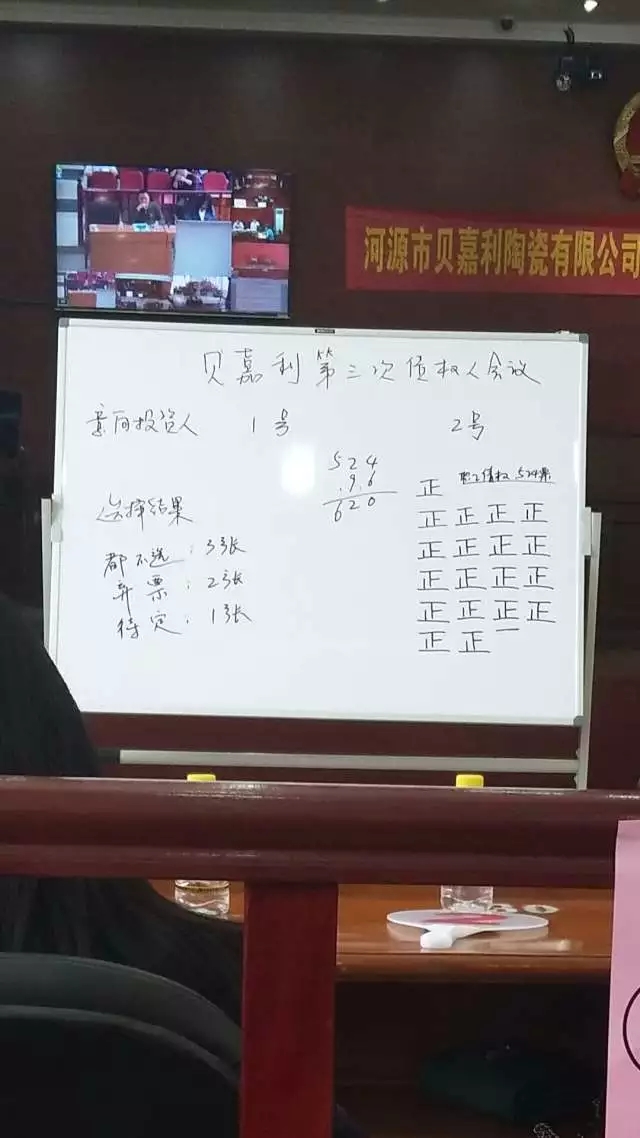 河源市贝嘉利陶瓷有限公司
贝嘉利第三次债权人会议
意向投资人 1号 2号
524
96
620
选择结果
都不选：3张
弃票：2张
待定：1张
正 职工债权524票
正 正 正 正
正 正 正 正
正 正 正 正
正 正 正 正
正 正 一